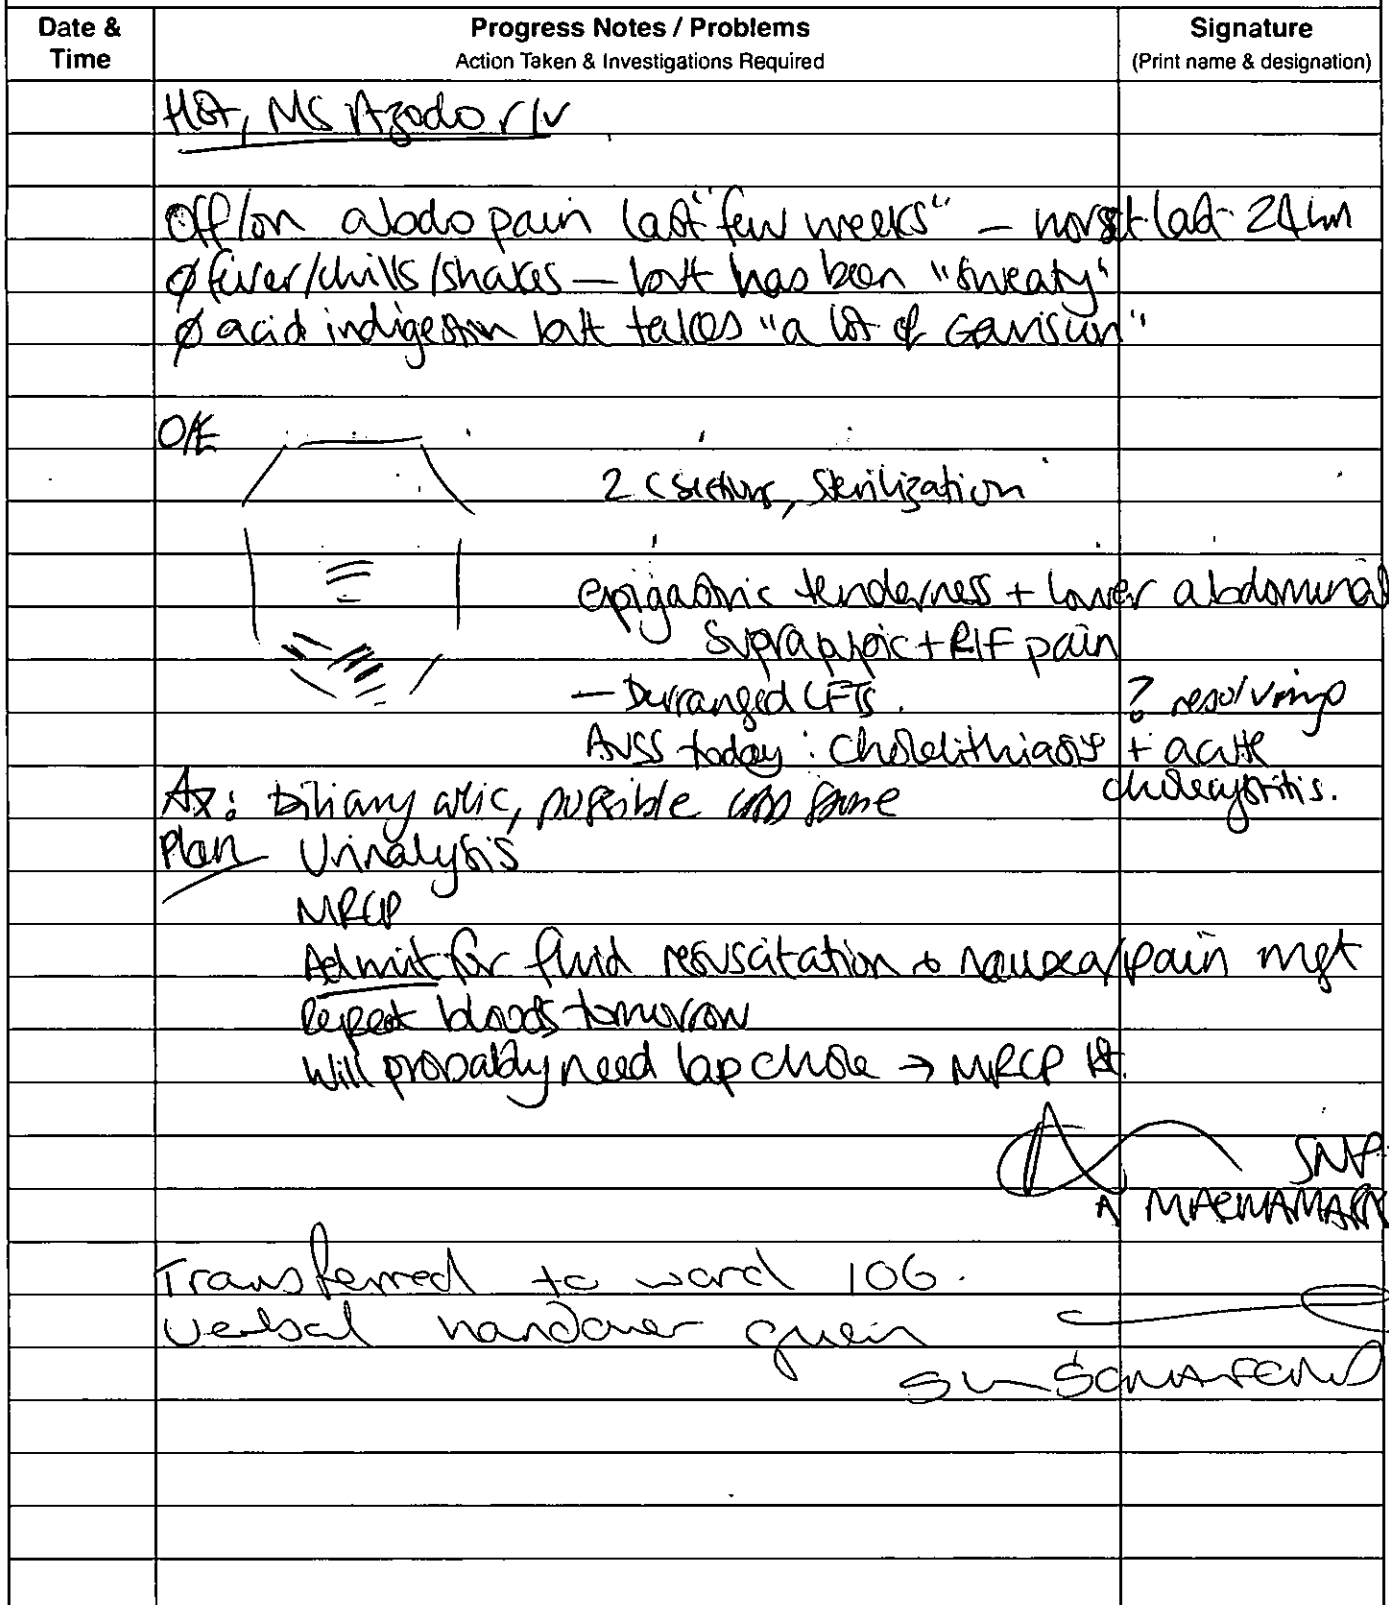 Date & Time
Progress Notes / Problems
Action Taken & Investigations Required
Signature
(Print name & designation)
MS Azodo r/v
Off/on abdo pain last "few weeks" – worst last 24hrs
Ø fever/chills/shakes – but has been "sweaty"
Ø acid indigestion but takes "a lot of Gaviscon"
O/E
2 C sections, sterilization
epigastric tenderness + lower abdominal
suprapubic + RIF pain
– Deranged LFTs.
? resolving
AUSS today : Cholelithiasis + acute
cholecystitis.
Ax: biliary colic, possible CBD stone
Plan Urinalysis
MRCP
Admit for fluid resuscitation + nausea/pain mgt
repeat bloods tomorrow
Will probably need lap chole → MRCP 1st.
SNP
A
Transferred to ward 106.
Verbal handover given